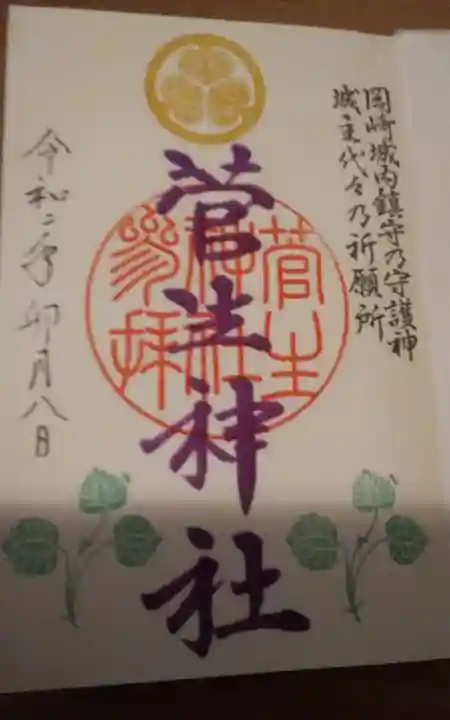 岡崎城内鎮守乃守護神
城主代々乃祈願所
菅生神社
菅生神社参拝
令和二年卯月八日